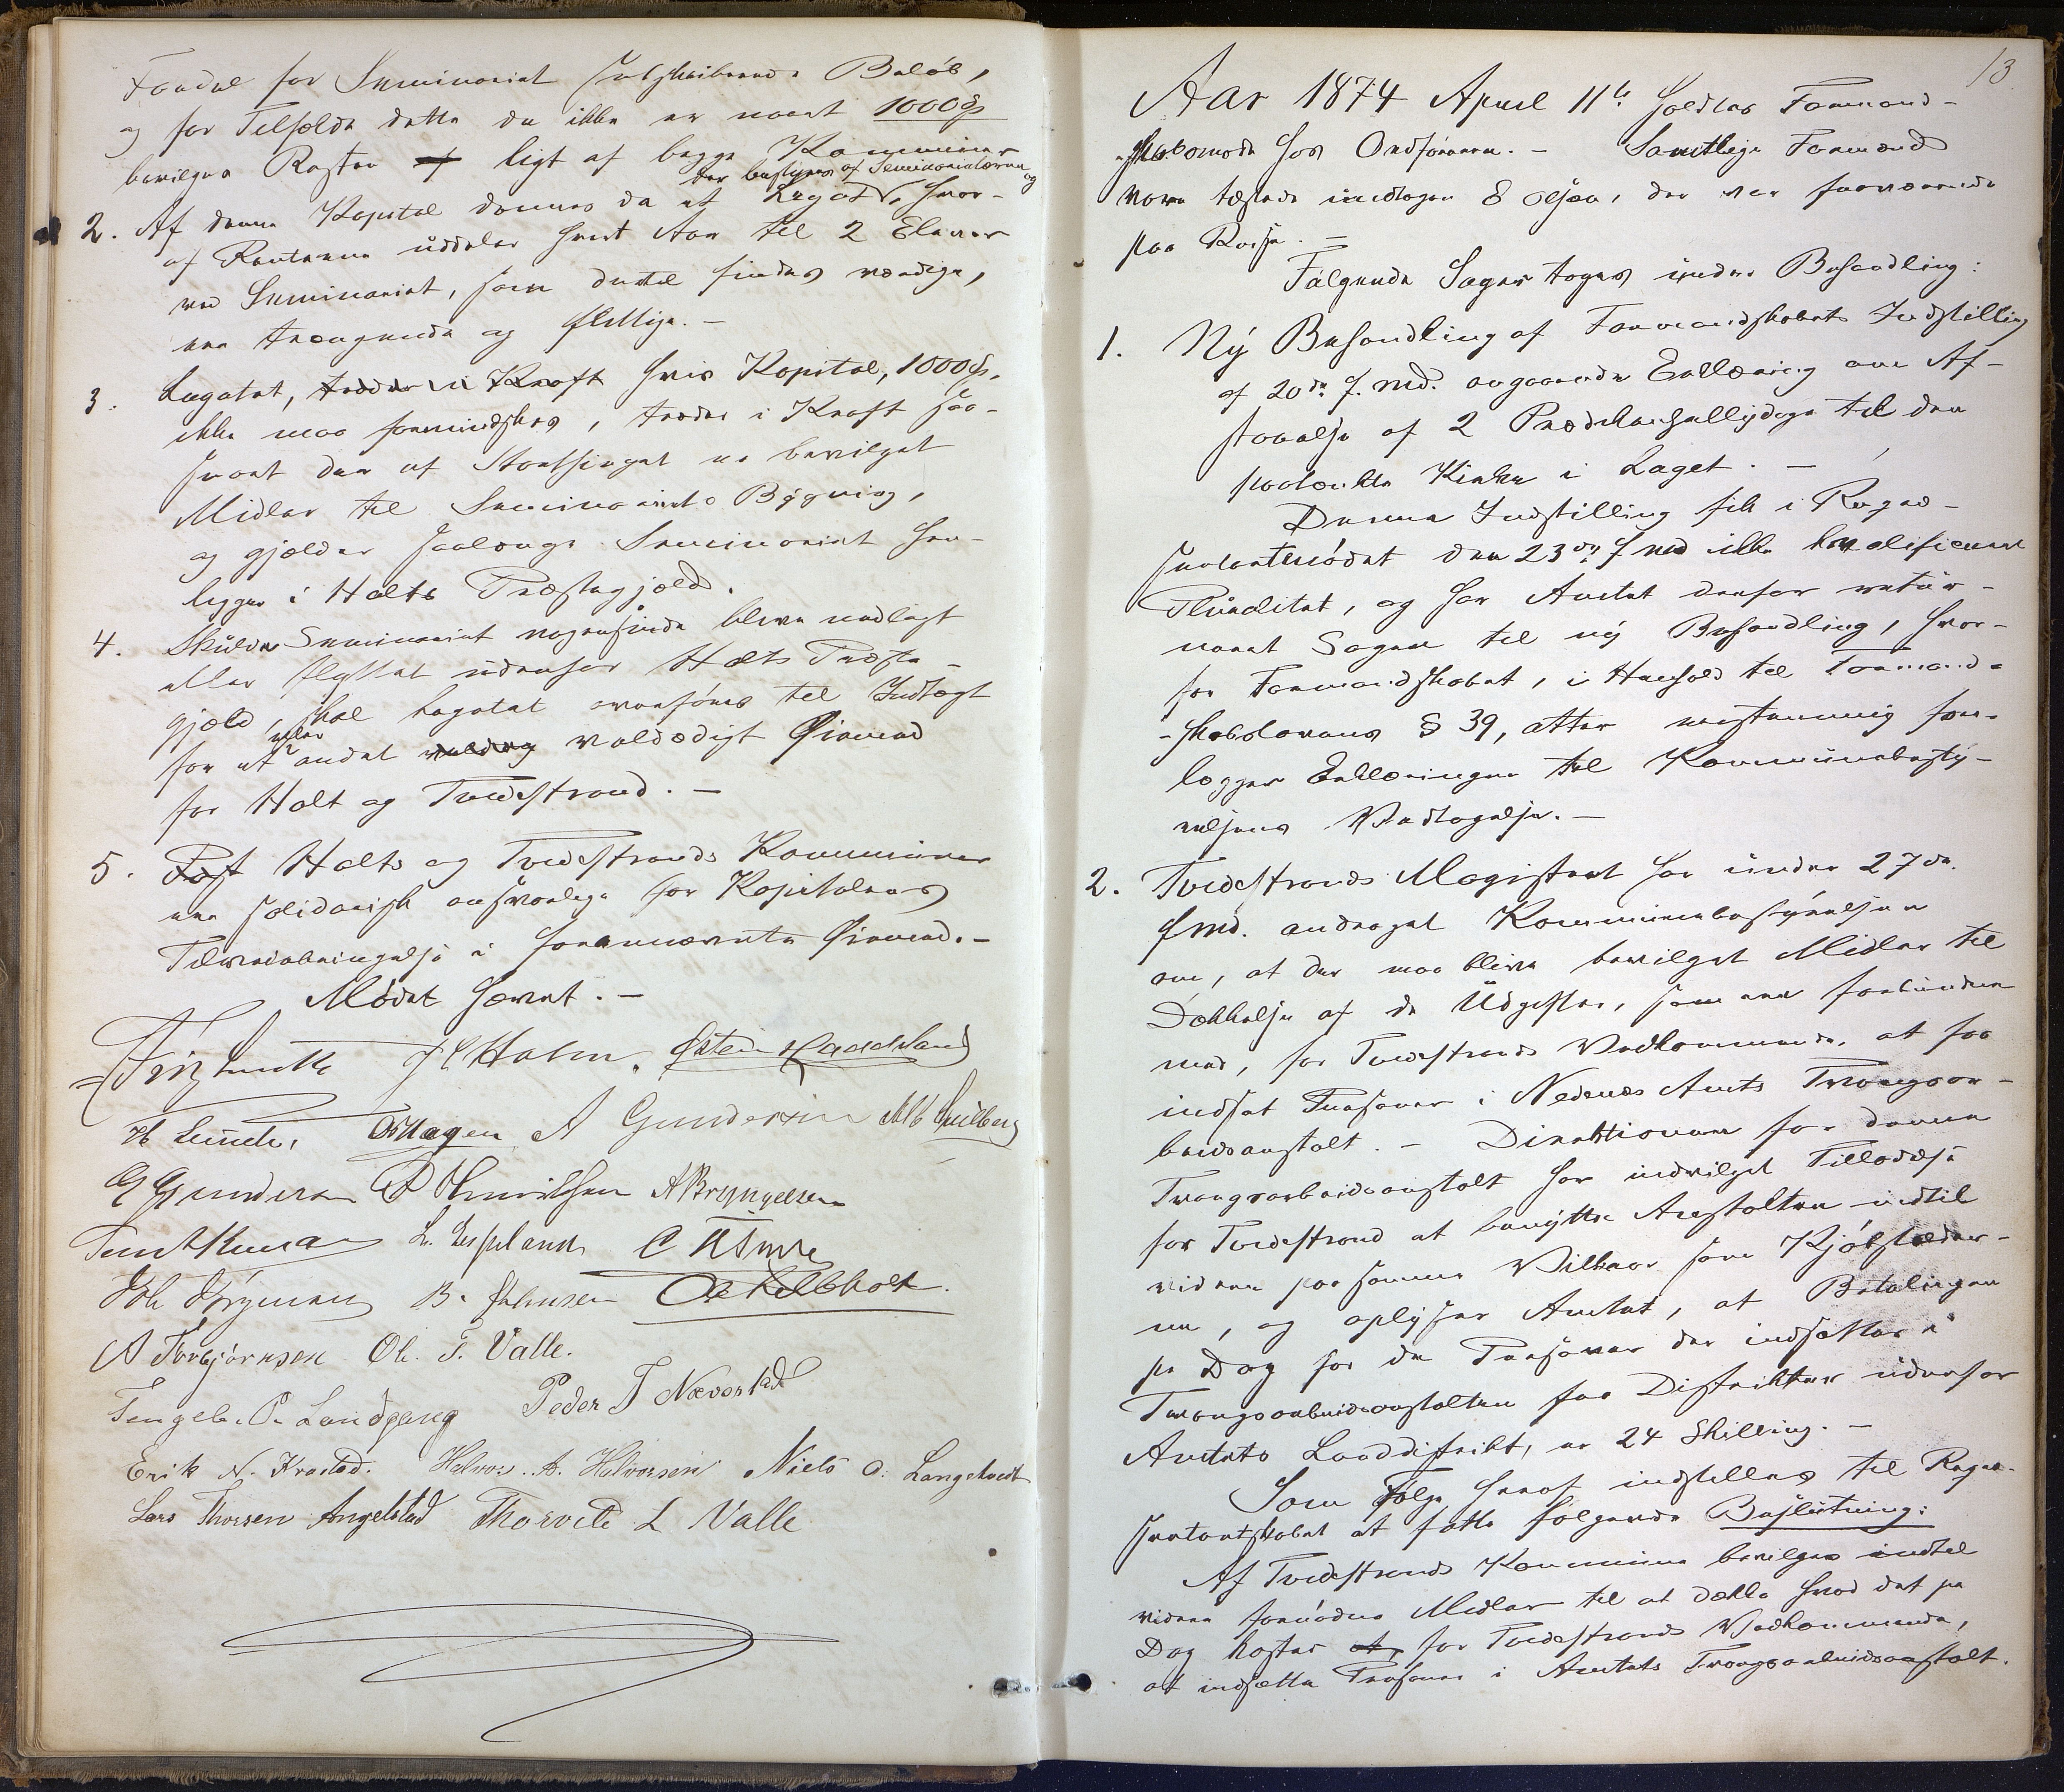 Fondet for Seminariet subskriberede Beløb,
og for Tilfælde dette da ikke er naaet 1000 Spd
bevilges Resten af ligt af begge Kommuner
der bestyres af Seminarielæreren og
2. Af denne Kapital dannes da et Legat, hvor-
af Renterne uddeles hvert Aar til 2 Elever
ved Seminariet, som dertil findes værdige,
ere trængende og flittige. -
3. Legatet, træder i Kraft hvis Kapital, 1000 Spd,
ikke maa formindskes, træder i Kraft saa-
snart der af Storthinget er bevilget
Midler til Seminariets Bygning,
og gjælder saalænge Seminariet hen-
ligger i Holts Præstegjæld.
4. Skulde Seminariet nogensinde blive nedlagt
eller flyttet udenfor Holts Præste-
gjæld, skal Legatet overføres til Indtægt
for et eller andet veldædigt Øiemed
for Holt og Tvedestrand. -
5. Holts og Tvedestrands Kommuner
ere solidarisk ansvarlige for Kapitalens
Tilveiebringelse i forannævnte Øiemed. -
Mødet hævet. -
J C Holm. Østen Haackland
H Lunde, O. Hagen A Gundersen
G Gundersen P Henriksen A Bryngelsen
L. Espeland
B. Johnsen O. Kilbholt.
A Torbjørnsen Ol. T. Valle.
P. Landgang Peder T Næverstad
Erik N. Krastad. Halvor. A. Halvorsen Niels O. Langeland
Lars Thorsen Angelstad Thorvald L Valle
13
Aar 1874 April 11te holdtes Formand-
skabsmøde hos Ordføreren. - Samtlige Formænd
vare tilstede undtagen E Olsen, der var fraværende
paa Reise. -
Følgende Sager toges under Behandling:
1. Ny Behandling af Formandskabets Indstilling
af 20de f. Md. angaaende Erklæring om Af-
staaelse af 2 Prædikenhelligdage til den
paatænkte Kirke i Laget. -
Denne Indstilling fik i Repræ-
sentantmødet den 23de f Md ikke kvalificeret
Pluralitet, og har Amtet derfor retur-
neret Sagen til ny Behandling, hvor-
for Formandskabet, i Henhold til Formand-
skabslovens § 39, atter enstemmig fore-
lægger Erklæringen til Kommunebesty-
relsens Vedtagelse. -
2. Tvedestrands Magistrat har under 27de
f Md. andraget Kommunebestyrelsen
om, at der maa blive bevilget Midler til
Dækkelse af de Udgifter, som ere forbundne
med, for Tvedestrands Vedkommende, at faa
indsat Personer i Nedenæs Amts Tvangsar-
beidsanstalt. - Direktionen for denne
Tvangsarbeidsanstalt har indvilget Tilladelse
for Tvedestrand at benytte Anstalten indtil
videre paa samme Vilkaar som Kjøbstæder-
ne, og oplyser Amtet, at Betalingen
pr Dag for de Personer der indsættes i
Tvangsarbeidsanstalten fra Distrikter udenfor
Amtets Landdistrikt, er 24 Skilling. -
Som Følge heraf indstilles til Repræ-
sentantskabet at fatte følgende Beslutning:
Af Tvedestrands Kommune bevilges indtil
videre fornødne Midler til at dække hvad det pr
Dag koster at, for Tvedestrands Vedkommende,
at indsætte Personer i Amtets Tvangsarbeidsanstalt.